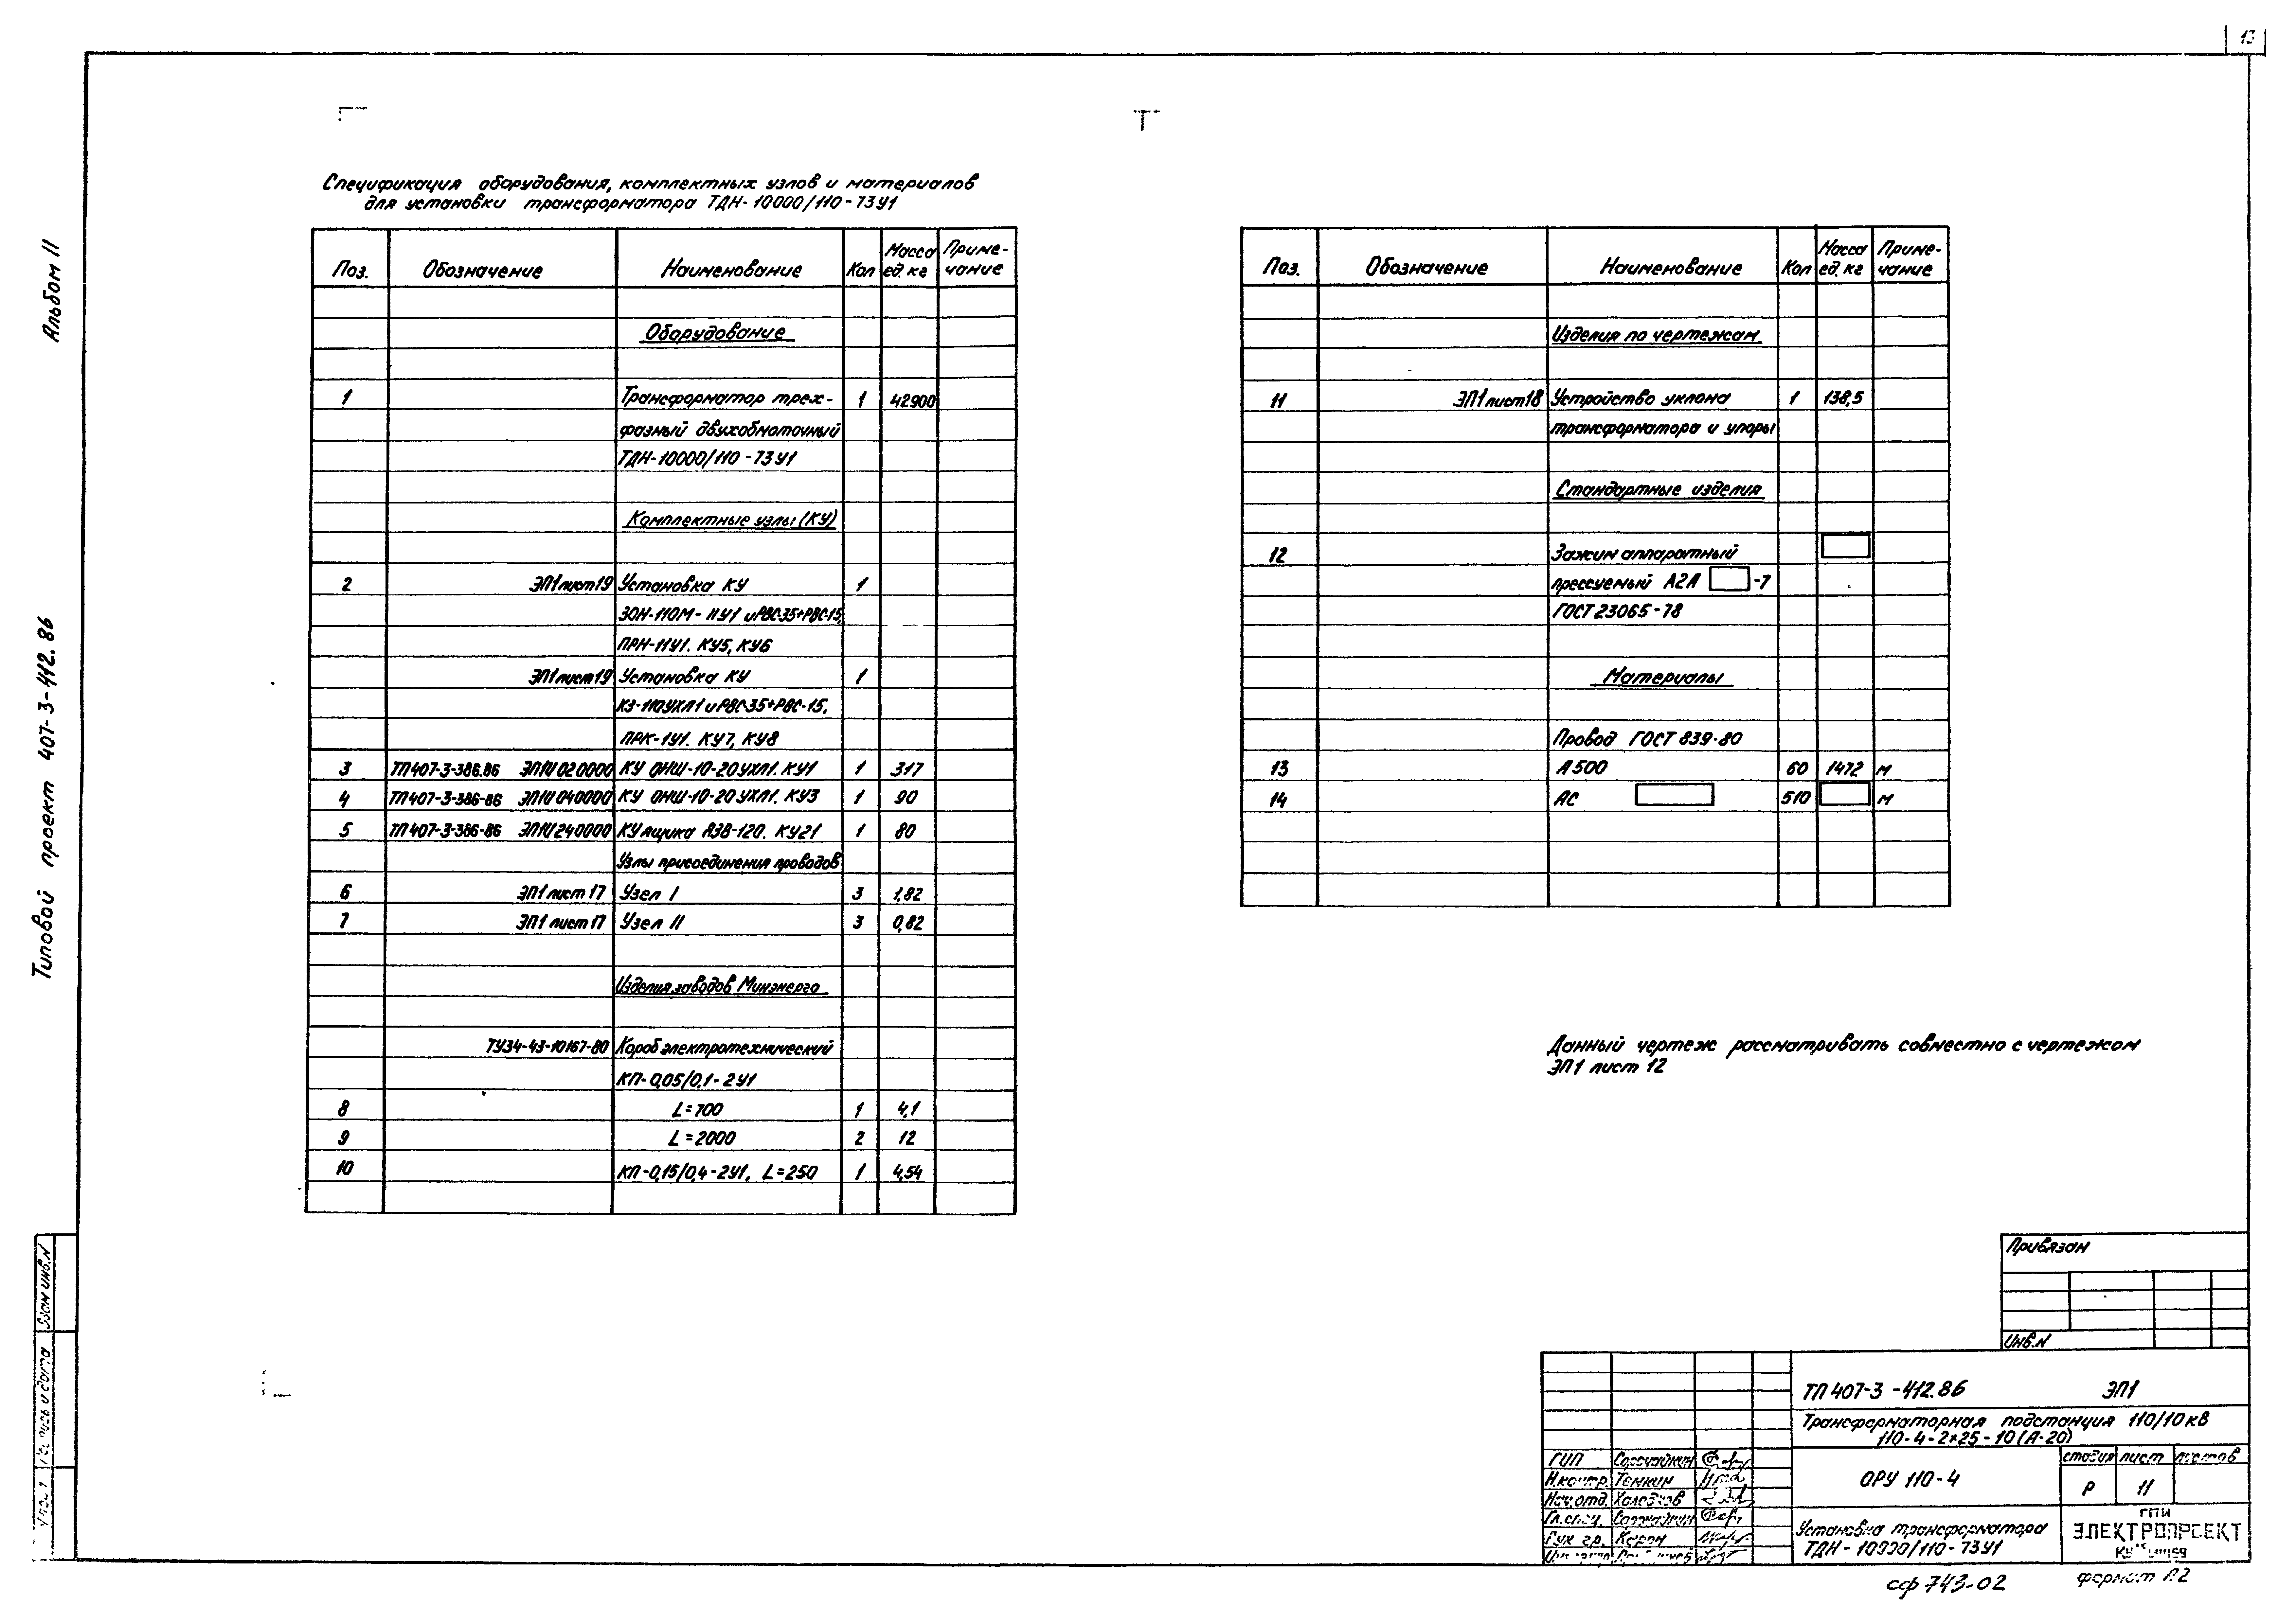 13
Альбом II
Типовой проект 407-3-412.86
Спецификация оборудования, комплектных узлов и материалов
для установки трансформатора ТДН-10000/110-73У1
Поз. Обозначение Наименование Кол Масса ед. кг Приме-чание
Оборудование
1 Трансформатор трех- 1 42900
фазный двухобмоточный
ТДН-10000/110-73У1
Комплектные узлы (КУ)
2 ЭП1 лист 19 Установка КУ 1
ЗОН-110М-IIУ1 и РВС-35+РВС-15,
ПРН-11У1. КУ5, КУ6
ЭП1 лист 19 Установка КУ 1
КЗ-110УХЛ1 и РВС-35+РВС-15,
ПРК-1У1. КУ7, КУ8
3 ТП407-3-386.86 ЭП1U020000 КУ ОНШ-10-20УХЛ1. КУ1 1 317
4 ТП407-3-386-86 ЭП1U040000 КУ ОНШ-10-20УХЛ1. КУ3 1 90
5 ТП407-3-386-86 ЭП1U240000 КУ ящика ЯЗВ-120. КУ21 1 80
Узлы присоединения проводов
6 ЭП1 лист 17 Узел I 3 1,82
7 ЭП1 лист 17 Узел II 3 0,82
Изделия заводов Минэнерго
ТУ34-43-10167-80 Короб электротехнический
КП-0,05/0,1-2У1
8 L=700 1 4,1
9 L=2000 2 12
10 КП-0,15/0,4-2У1, L=250 1 4,54
Поз. Обозначение Наименование Кол Масса ед. кг Приме-чание
Изделия по чертежам
11 ЭП1 лист 18 Устройство уклона 1 138,5
трансформатора и упоры
Стандартные изделия
12 Зажим аппаратный
прессуемый А2А -7
ГОСТ 23065-78
Материалы
Провод ГОСТ 839-80
13 А 500 60 1472 м
14 АС 510 м
Данный чертеж рассматривать совместно с чертежом
ЭП1 лист 12
Привязан
Инв.N
ТП 407-3-412.86 ЭП1
Трансформаторная подстанция 110/10кВ
110-4-2×25-10(А-20)
ОРУ 110-4
стадия лист листов
Р 11
Установка трансформатора
ТДН-10000/110-73У1
ГПИ
ЭЛЕКТРОПРОЕКТ
ГИП
Н.контр. Темкин
Нач.отд. Холодков
Гл.спец.
Рук. гр. Карон
Взам инв.N
сф 743-02
формат А2